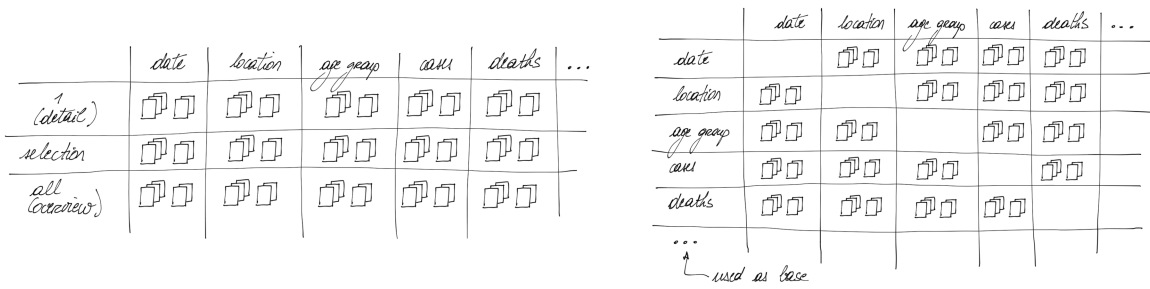 date location age group cases deaths ...
1
(detail)
selection
all
(overview)
date location age group cases deaths ...
date
location
age group
cases
deaths
...
used as base